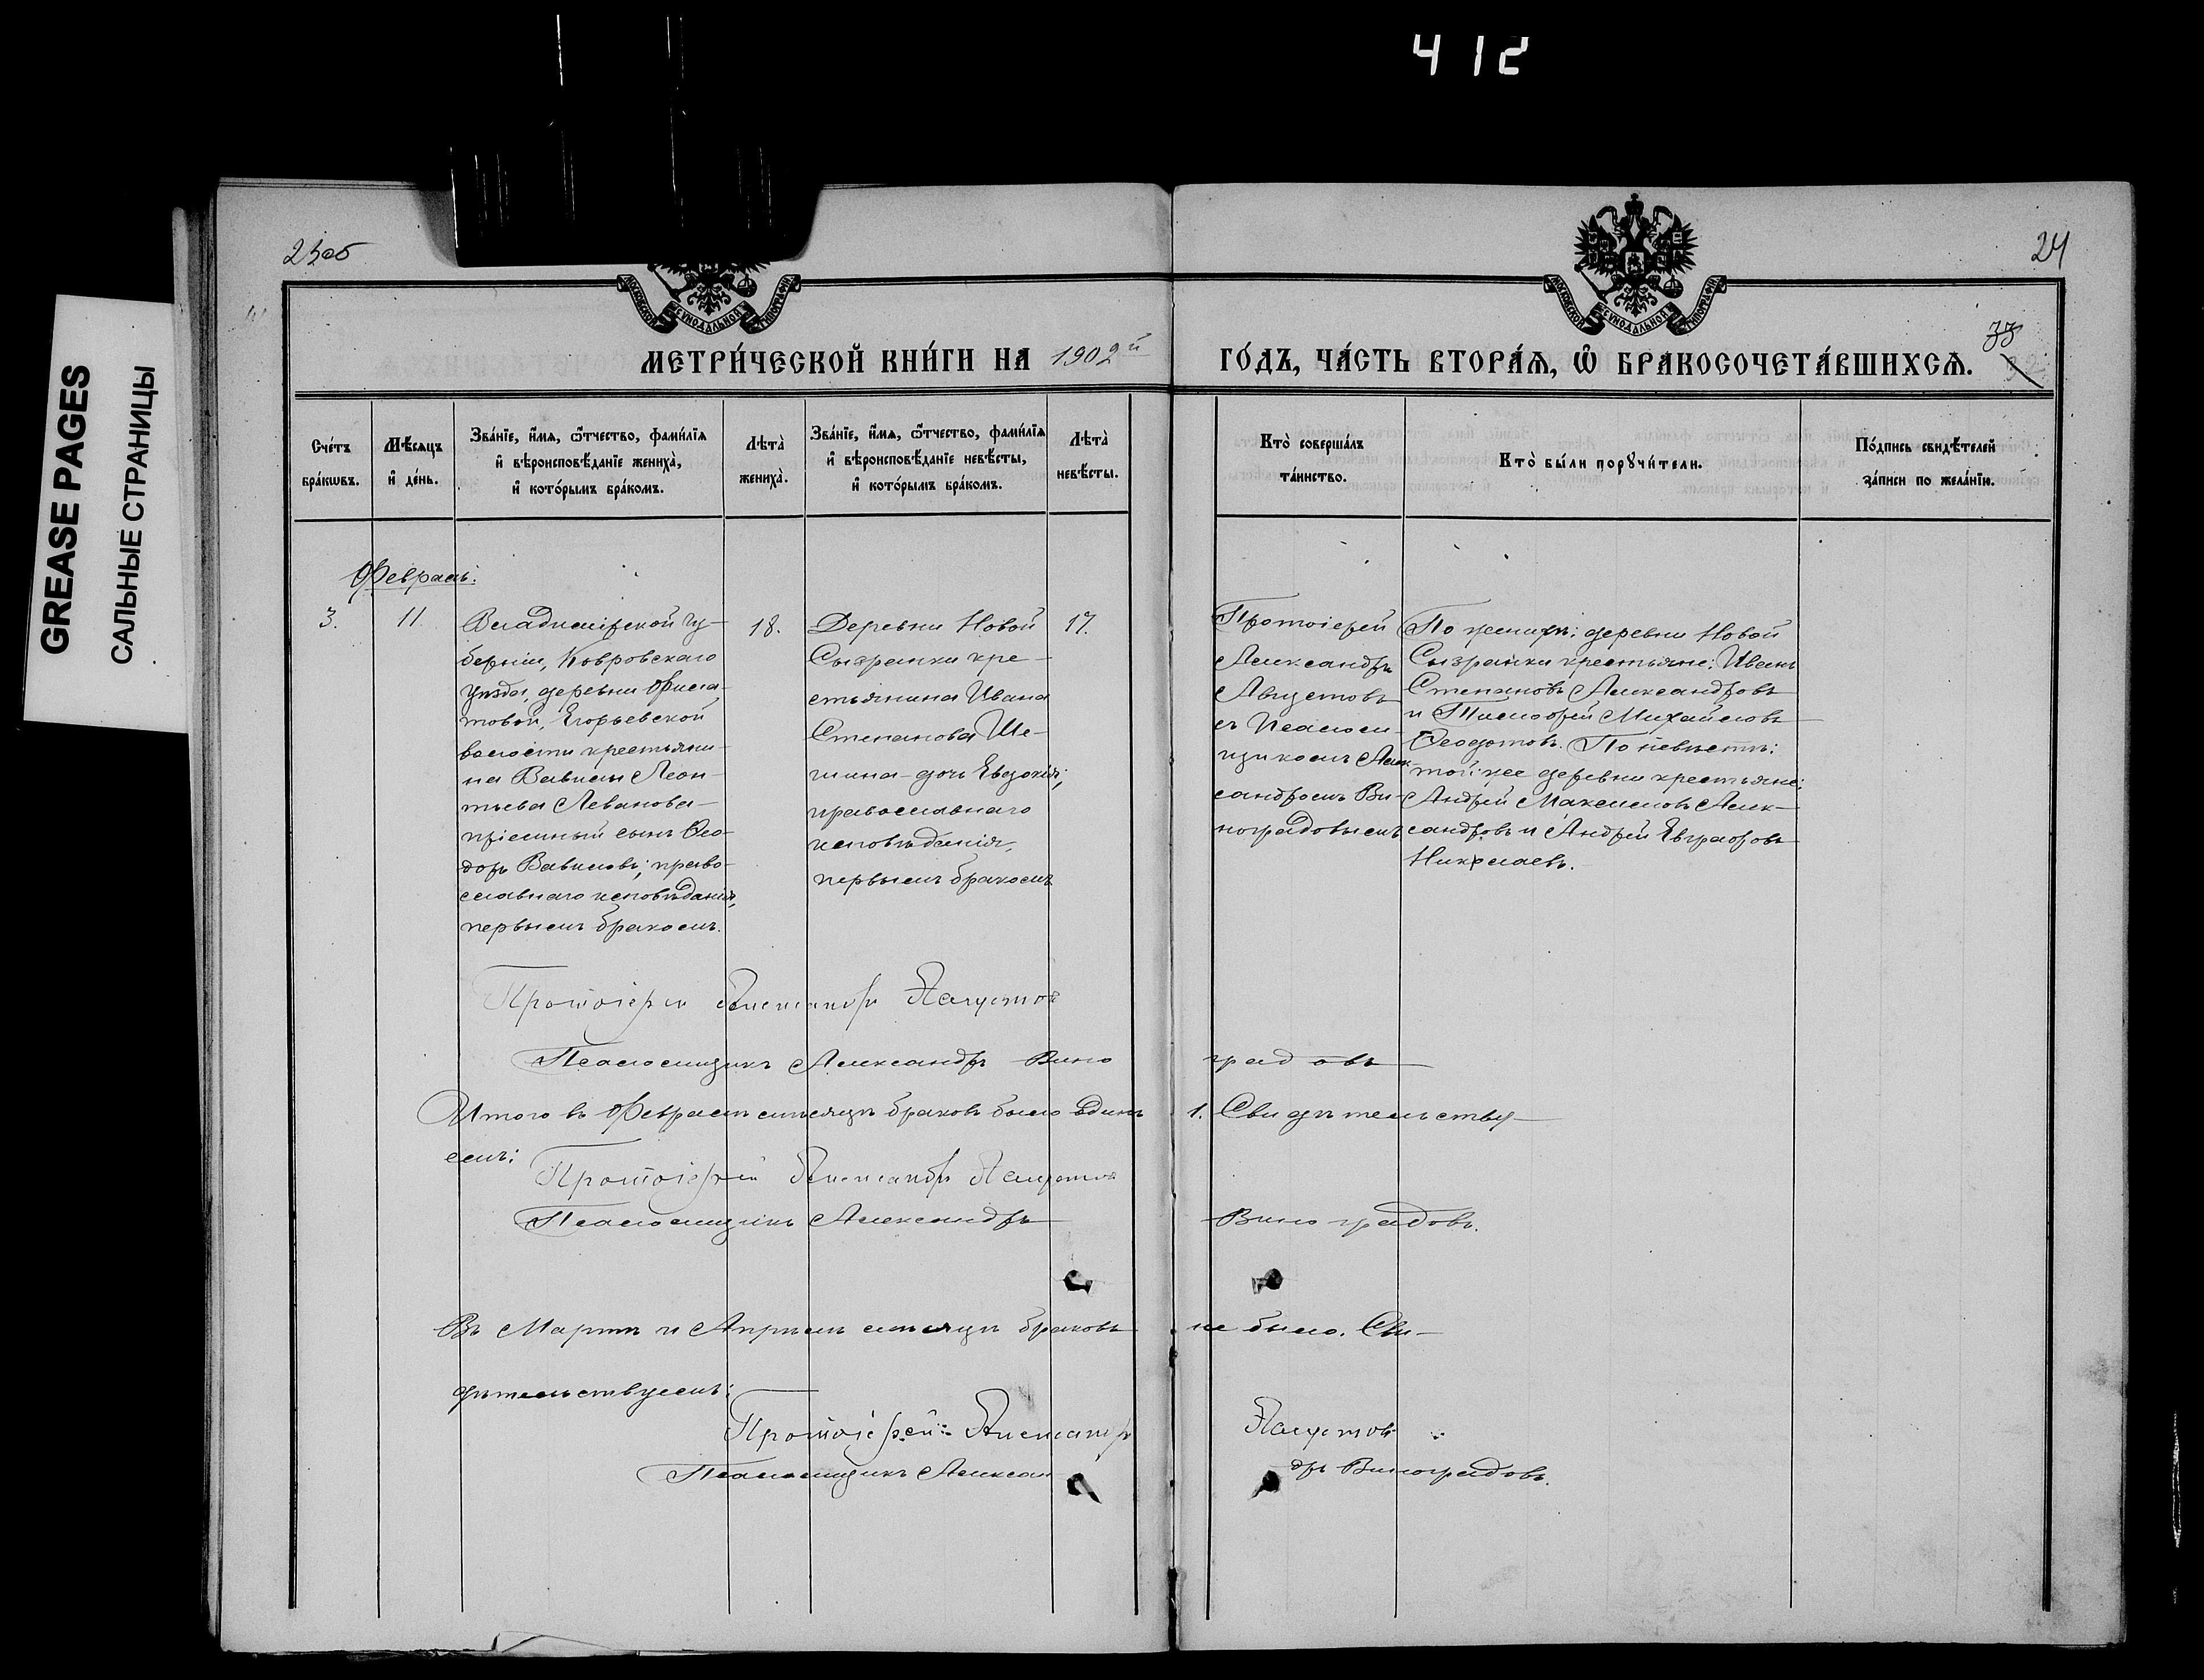 412
GREASE PAGES
САЛЬНЫЕ СТРАНИЦЫ
23об
24
МОСКОВСКОЙ СѴНОДАЛЬНОЙ ТИПОГРАФІИ
МОСКОВСКОЙ СѴНОДАЛЬНОЙ ТИПОГРАФІИ
МЕТРИ́ЧЕСКОЙ КНИ́ГИ НА 1902й
ГО́ДЪ, ЧА́СТЬ ВТОРА́Ѧ, Ѽ БРАКОСОЧЕТА́ВШИХСѦ.
33
Сче́тъ бра́кѡвъ.
Мѣ́сяцъ и҆ де́нь.
Зва́нїе, и҆́мѧ, ѻ҆́тчество, фами́лїѧ и҆ вѣроисповѣ́данїе жениха̀, и҆ кото́рымъ бра́комъ.
Лѣ́та жениха̀.
Зва́нїе, и҆́мѧ, ѻ҆́тчество, фами́лїѧ и҆ вѣроисповѣ́данїе невѣ́сты, и҆ кото́рымъ бра́комъ.
Лѣ́та невѣ́сты.
Кто̀ соверша́лъ та́инство.
Кто̀ бы́ли порꙋчи́тели.
По́дпись свидѣ́телей за́писи по жела́нїю.
Февраль:
3.
11.
Владимірской гу-
берніи, Ковровскаго
уѣзда, деревни Фила-
товой, Егорьевской
волости крестьяни-
на Вавилы Леон-
тьева Леванова
пріемный сынъ Ѳео-
доръ Вавиловъ; право-
славнаго исповѣданія,
первымъ бракомъ.
18.
Деревни Новой
Сызранки кре-
стьянина Ивана
Степанова Ше-
шина дочь Евдокія;
православнаго
исповѣданія,
первымъ бракомъ
17.
Протоіерей
Александръ
Августовъ
съ Псаломщи-
комъ Алек-
сандромъ Ви-
ноградовымъ
По женихѣ: деревни Новой
Сызранки крестьяне: Иванъ
Степановъ Александровъ
и Тимофей Михайловъ
Ѳеодотовъ. По невѣстѣ:
той же деревни крестьяне:
Андрей Максимовъ Алек-
сандровъ и Андрей Евграфовъ
Николаевъ.
Протоіерей Александръ Августовъ
Псаломщикъ Александръ Виноградовъ
Итого въ Февралѣ мѣсяцѣ браковъ было одинъ 1. Свидѣтельству-
емъ:
Протоіерей Александръ Августовъ
Псаломщикъ Александръ Виноградовъ.
Въ Мартѣ и Апрѣлѣ мѣсяцѣ браковъ не было. Сви-
дѣтельствуемъ:
Протоіерей Александръ Августовъ
Псаломщикъ Александръ Виноградовъ.